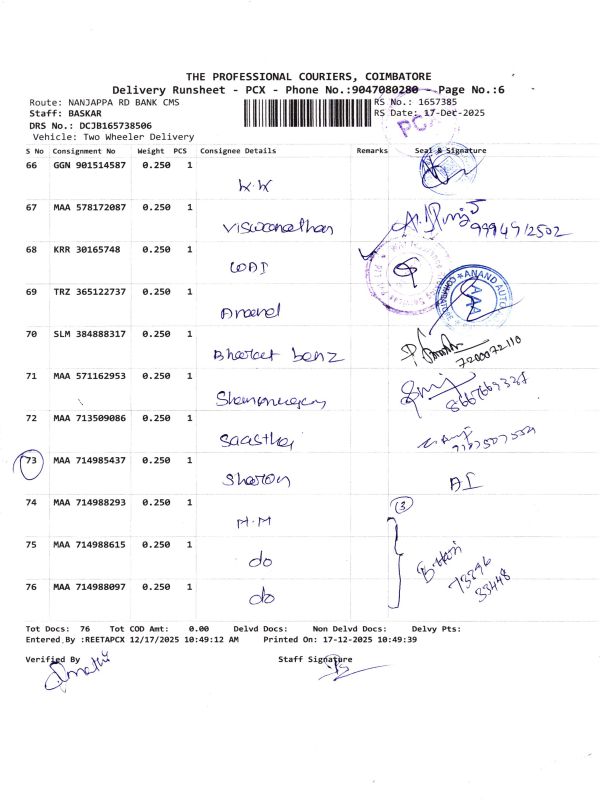 THE PROFESSIONAL COURIERS, COIMBATORE
Delivery Runsheet - PCX - Phone No.:9047080280 - Page No.:6
Route: NANJAPPA RD BANK CMS
RS No.: 1657385
Staff: BASKAR
RS Date: 17-Dec-2025
DRS No.: DCJB165738506
Vehicle: Two Wheeler Delivery
S No Consignment No Weight PCS Consignee Details Remarks Seal & Signature
66 GGN 901514587 0.250 1
K.K
67 MAA 578172087 0.250 1
Viswanathan
9994912502
68 KRR 30165748 0.250 1
69 TRZ 365122737 0.250 1
Anand
ANAND AUTO
70 SLM 384888317 0.250 1
Bharat benz
7200072110
71 MAA 571162953 0.250 1
72 MAA 713509086 0.250 1
Saastha
73 MAA 714985437 0.250 1
Sharon
AI
74 MAA 714988293 0.250 1
M.M
3
75 MAA 714988615 0.250 1
do
B. Hari
73396
33448
76 MAA 714988097 0.250 1
do
Tot Docs: 76 Tot COD Amt: 0.00 Delvd Docs: Non Delvd Docs: Delvy Pts:
Entered By :REETAPCX 12/17/2025 10:49:12 AM Printed On: 17-12-2025 10:49:39
Verified By
Staff Signature